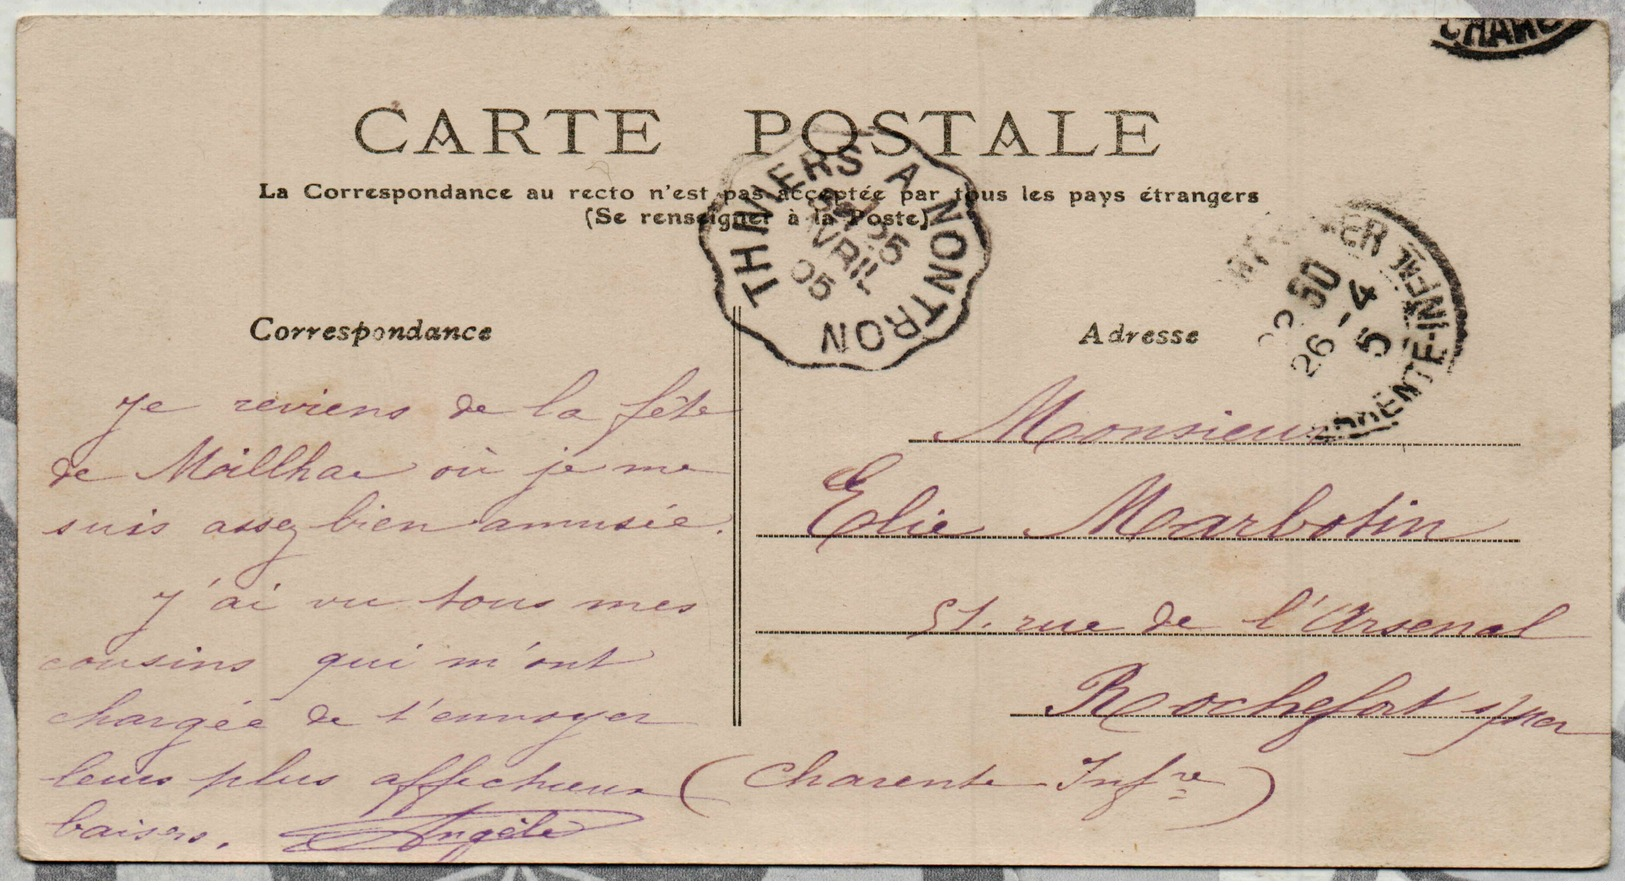 CHARE
CARTE POSTALE
La Correspondance au recto n'est pas acceptée par tous les pays étrangers
(Se renseigner à la Poste)
THIVIERS A NONTRON
AVRIL
05
50
26 -4
5
ENTE-INFRE
Correspondance
Je reviens de la fête
de Milhac où je me
suis assez bien amusée.
J'ai vu tous mes
cousins qui m'ont
chargée de t'envoyer
leurs plus affectueux
baisers. Angèle
Adresse
Monsieur
Elie Marbotin
51. rue de l'Arsenal
Rochefort s/mer
(Charente Infre)